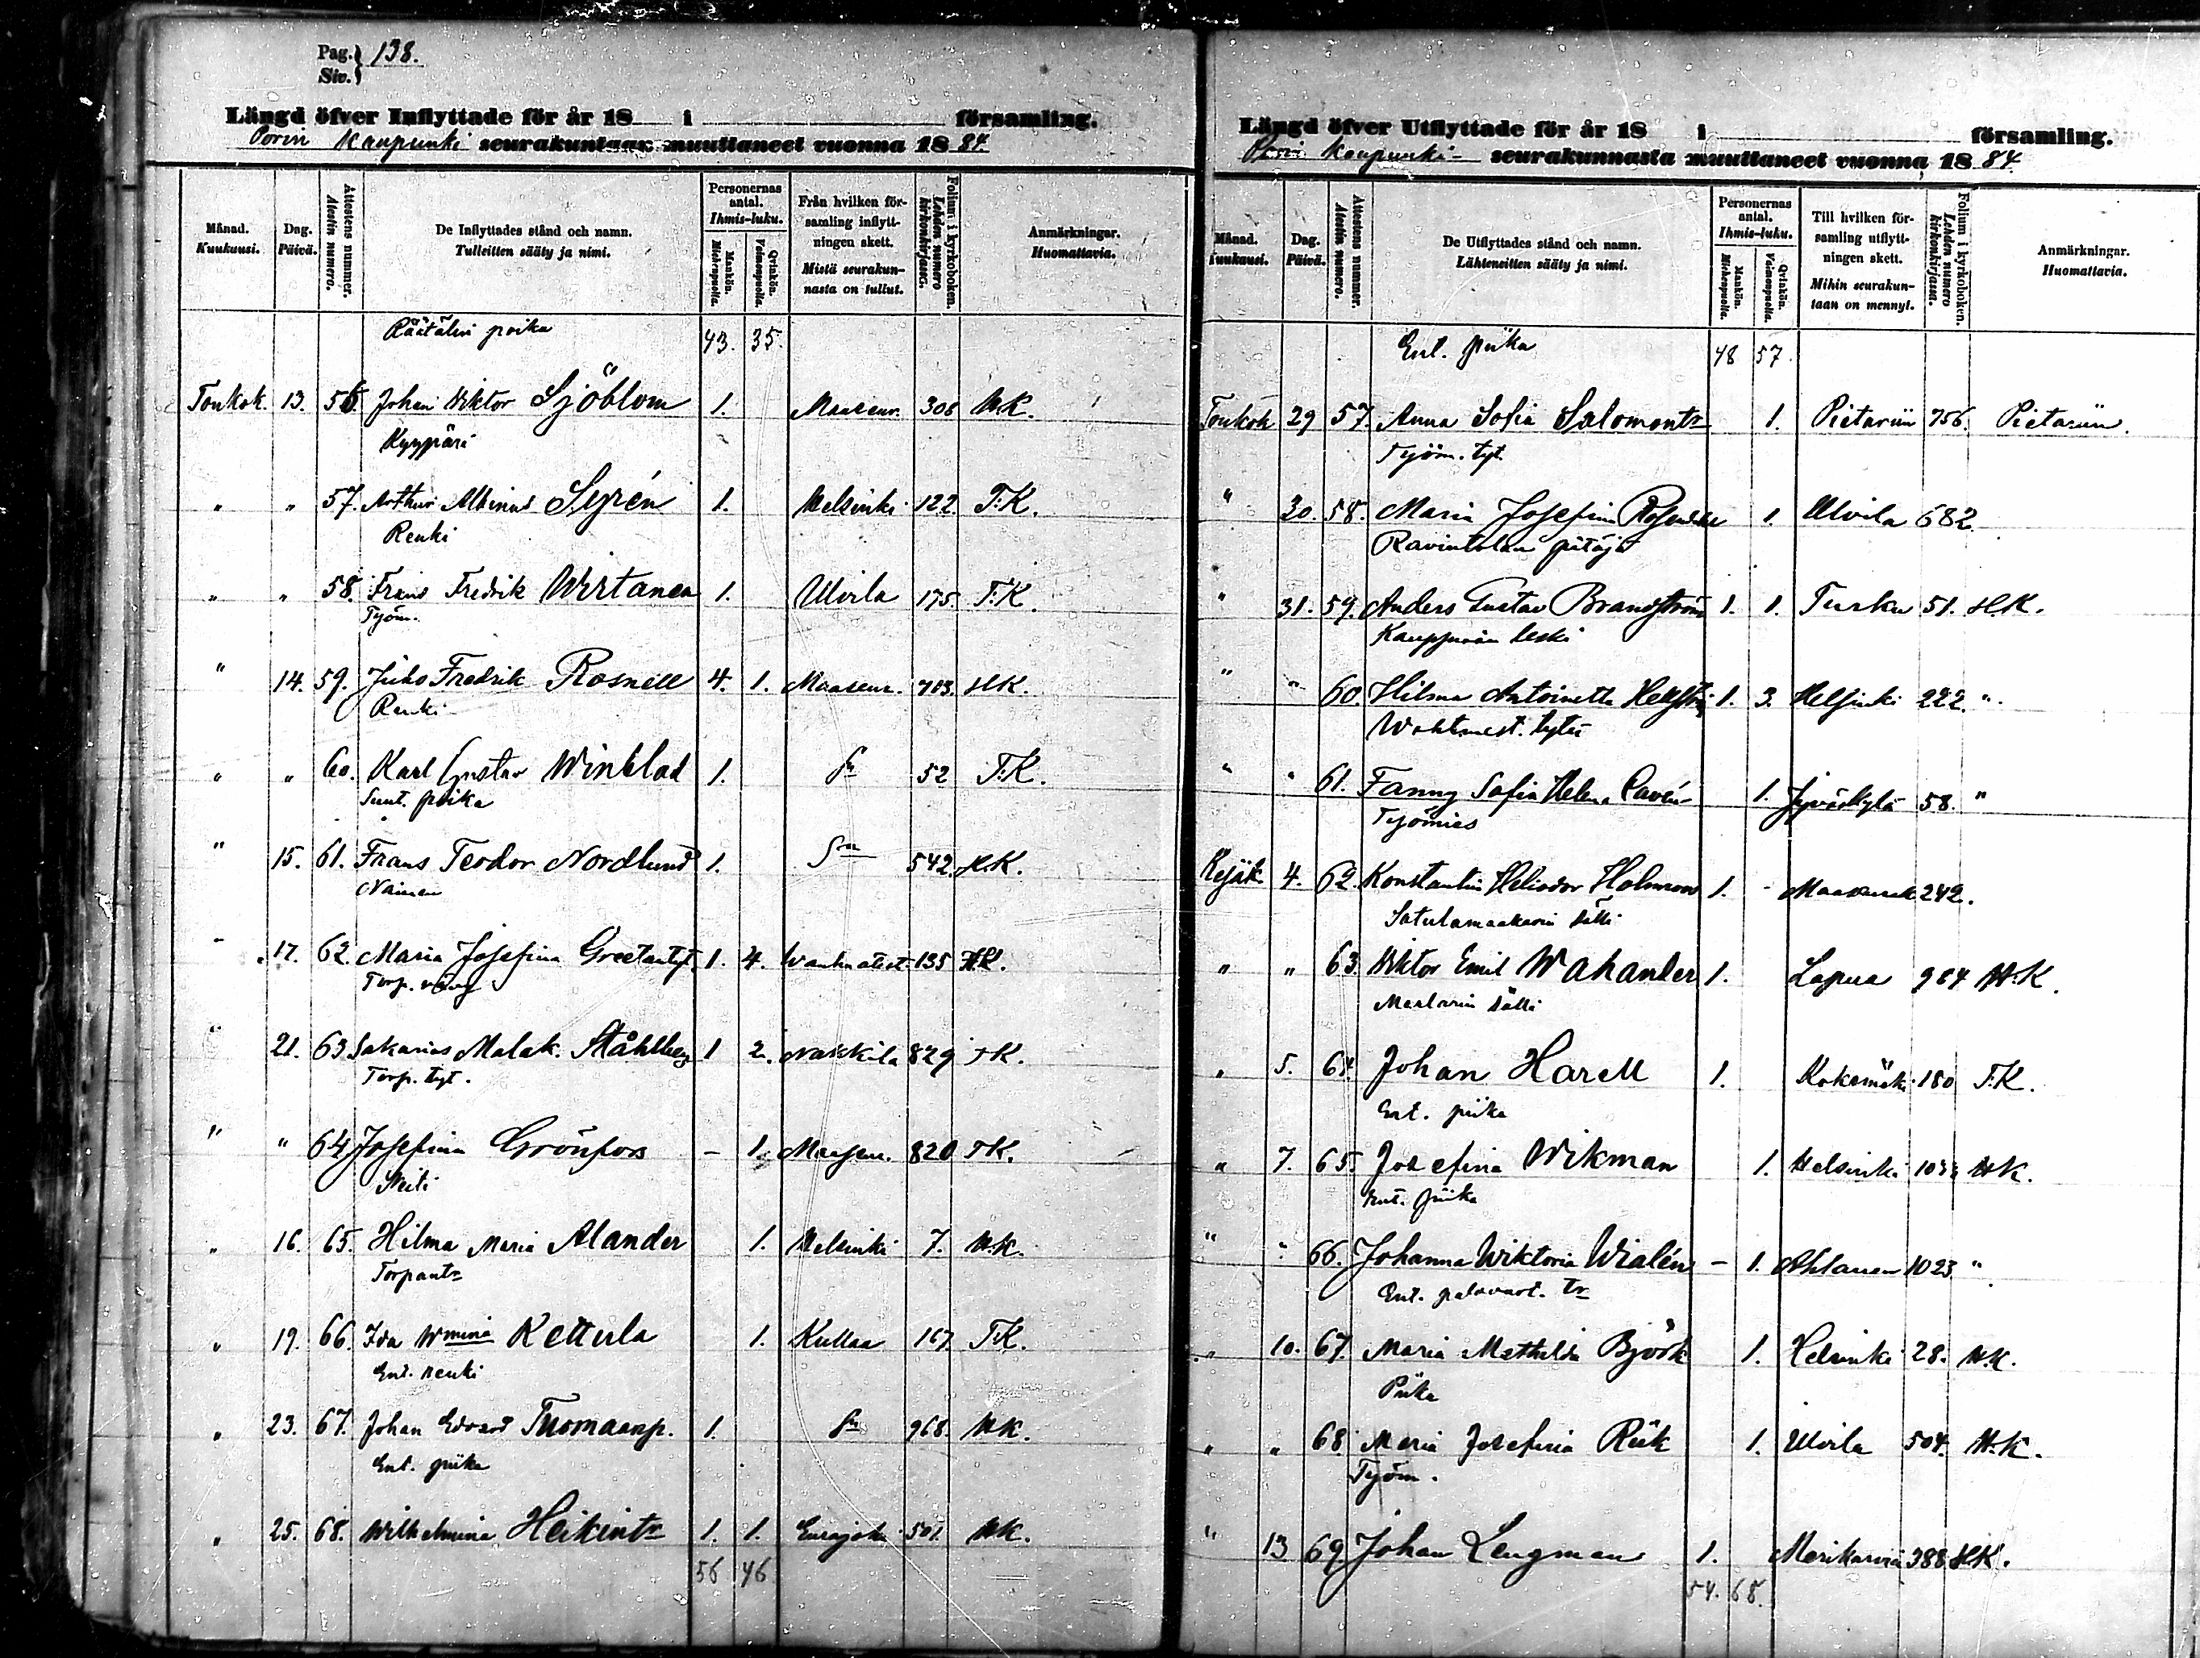 Pag. Siv. } 138.
Längd öfver Inflyttade för år 18 i församling.
Porin Kaupunki seurakuntaan muuttaneet vuonna 1884.
Månad. Kuukausi.
Dag. Päivä.
Attestens nummer. Atestin numero.
De Inflyttades stånd och namn. Tulleitten sääty ja nimi.
Personernas antal. Ihmis-luku.
Mankön. Miehenpuolta.
Qvinkön. Vaimonpuolta.
Från hvilken församling inflyttningen skett. Mistä seurakunnasta on tullut.
Folium i kyrkoboken. Lehden numero kirkonkirjassa.
Anmärkningar. Huomattavia.
Räätälin poika 43. 35.
Toukok. 13. 56 Johan Viktor Sjöblom 1. Maaseur. 306 H.K.
Kyyppäri
" " 57. Arthur Albinus Syrén 1. Helsinki 122. T.K.
Renki
" " 58. Frans Fredrik Wirtanen 1. Ulvila 175. T.K.
Työm.
" 14. 59. Juho Fredrik Rosnell 4. 1. Maaseur. 703. H.K.
Renki
" " 60. Karl Gustav Winblad 1. Sn 52 T.K.
Sunt. poika
" 15. 61. Frans Teodor Nordlund 1. Sn 542. H.K.
Nainen
" 17. 62. Maria Josefina Greetantyt. 1. 4. 135 H.K.
Torp. vävy
" 21. 63 Sakarias Malak. Ståhlberg 1 2. Nakkila 829 T.K.
Torp. tyt.
" " 64 Josefina Grönfors – 1. Maaseur. 820 T.K.
Neiti
" 16. 65. Hilma Maria Alander 1. Helsinki 7. H.K.
Torpantr
" 19. 66. Ida Wmina Kettula 1. Kullaa 167 T.K.
Ent. renki
" 23. 67. Johan Edvard Tuomaanp. 1. Sn 968. H.K.
Ent. piika
" 25. 68. Wilhelmina Heikintr 1. 1. Eurajoki 501. H.K.
56 46
Längd öfver Utflyttade för år 18 i församling.
Porin Kaupunki seurakunnasta muuttaneet vuonna 1884.
Månad. Kuukausi.
Dag. Päivä.
Attestens nummer. Atestin numero.
De Utflyttades stånd och namn. Lähteneitten sääty ja nimi.
Personernas antal. Ihmis-luku.
Mankön. Miehenpuolta.
Qvinkön. Vaimonpuolta.
Till hvilken församling utflyttningen skett. Mihin seurakuntaan on mennyt.
Folium i kyrkoboken. Lehden numero kirkonkirjassa.
Anmärkningar. Huomattavia.
Ent. piika 48 57.
Toukok 29 57. Anna Sofia Salomontr 1. Pietariin 756. Pietariin.
Työm. tyt.
" 30. 58. Maria Josefina 1. Ulvila 682.
Ravintolan pitäjä
" 31. 59. Anders Gustav Brandström 1. 1. Turku 51. H.K.
Kauppiaan leski
" " 60. Hilma Antoinetta 1. 3. Helsinki 222. "
Wahtmest. tytär
" " 61. Fanny Sofia Helena Cavén 1. Jyväskylä 58. "
Työmies
Kesäk. 4. 62. Konstantin Heliodor Holmroos 1. - Maaseurak 242.
Satulamaakarin sälli
" " 63. Viktor Emil Wahander 1. Lapua 984 H.K.
Maalarin sälli
" 5. 64. Johan Harell 1. Kokemäki 180 T.K.
Ent. piika
" 7. 65. Josefina Wikman 1. Helsinki H.K.
Ent. piika
" " 66. Johanna Wiktoria Wialén – 1. Ahlainen 1023 "
Ent. palovart. tr
" 10. 67. Maria Mathilda Björk 1. Helsinki 28. H.K.
Piika
" " 68. Maria Josefina Riik 1. Ulvila 504. H.K.
Työm.
" 13 69 Johan Lengman 1. Merikarvia 388 H.K.
54. 68.